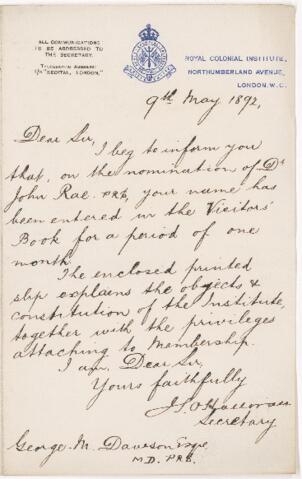 ALL COMMUNICATIONS
TO BE ADDRESSED TO
THE SECRETARY.
TELEGRAPHIC ADDRESS:
"RECITAL, LONDON."
ROYAL COLONIAL INSTITUTE,
NORTHUMBERLAND AVENUE,
LONDON, W.C.
9th May 1892,
Dear Sir,
I beg to inform you
that, on the nomination of Dr
John Rae. FRS, your name has
been entered in the Visitors'
Book for a period of one
month.
The enclosed printed
slip explains the objects &
constitution of the Institute,
together with the privileges
attaching to Membership.
I am, Dear Sir,
Yours faithfully
J.S. O'Halloran
Secretary
George. M. Dawson Esqre
M.D. FRS.